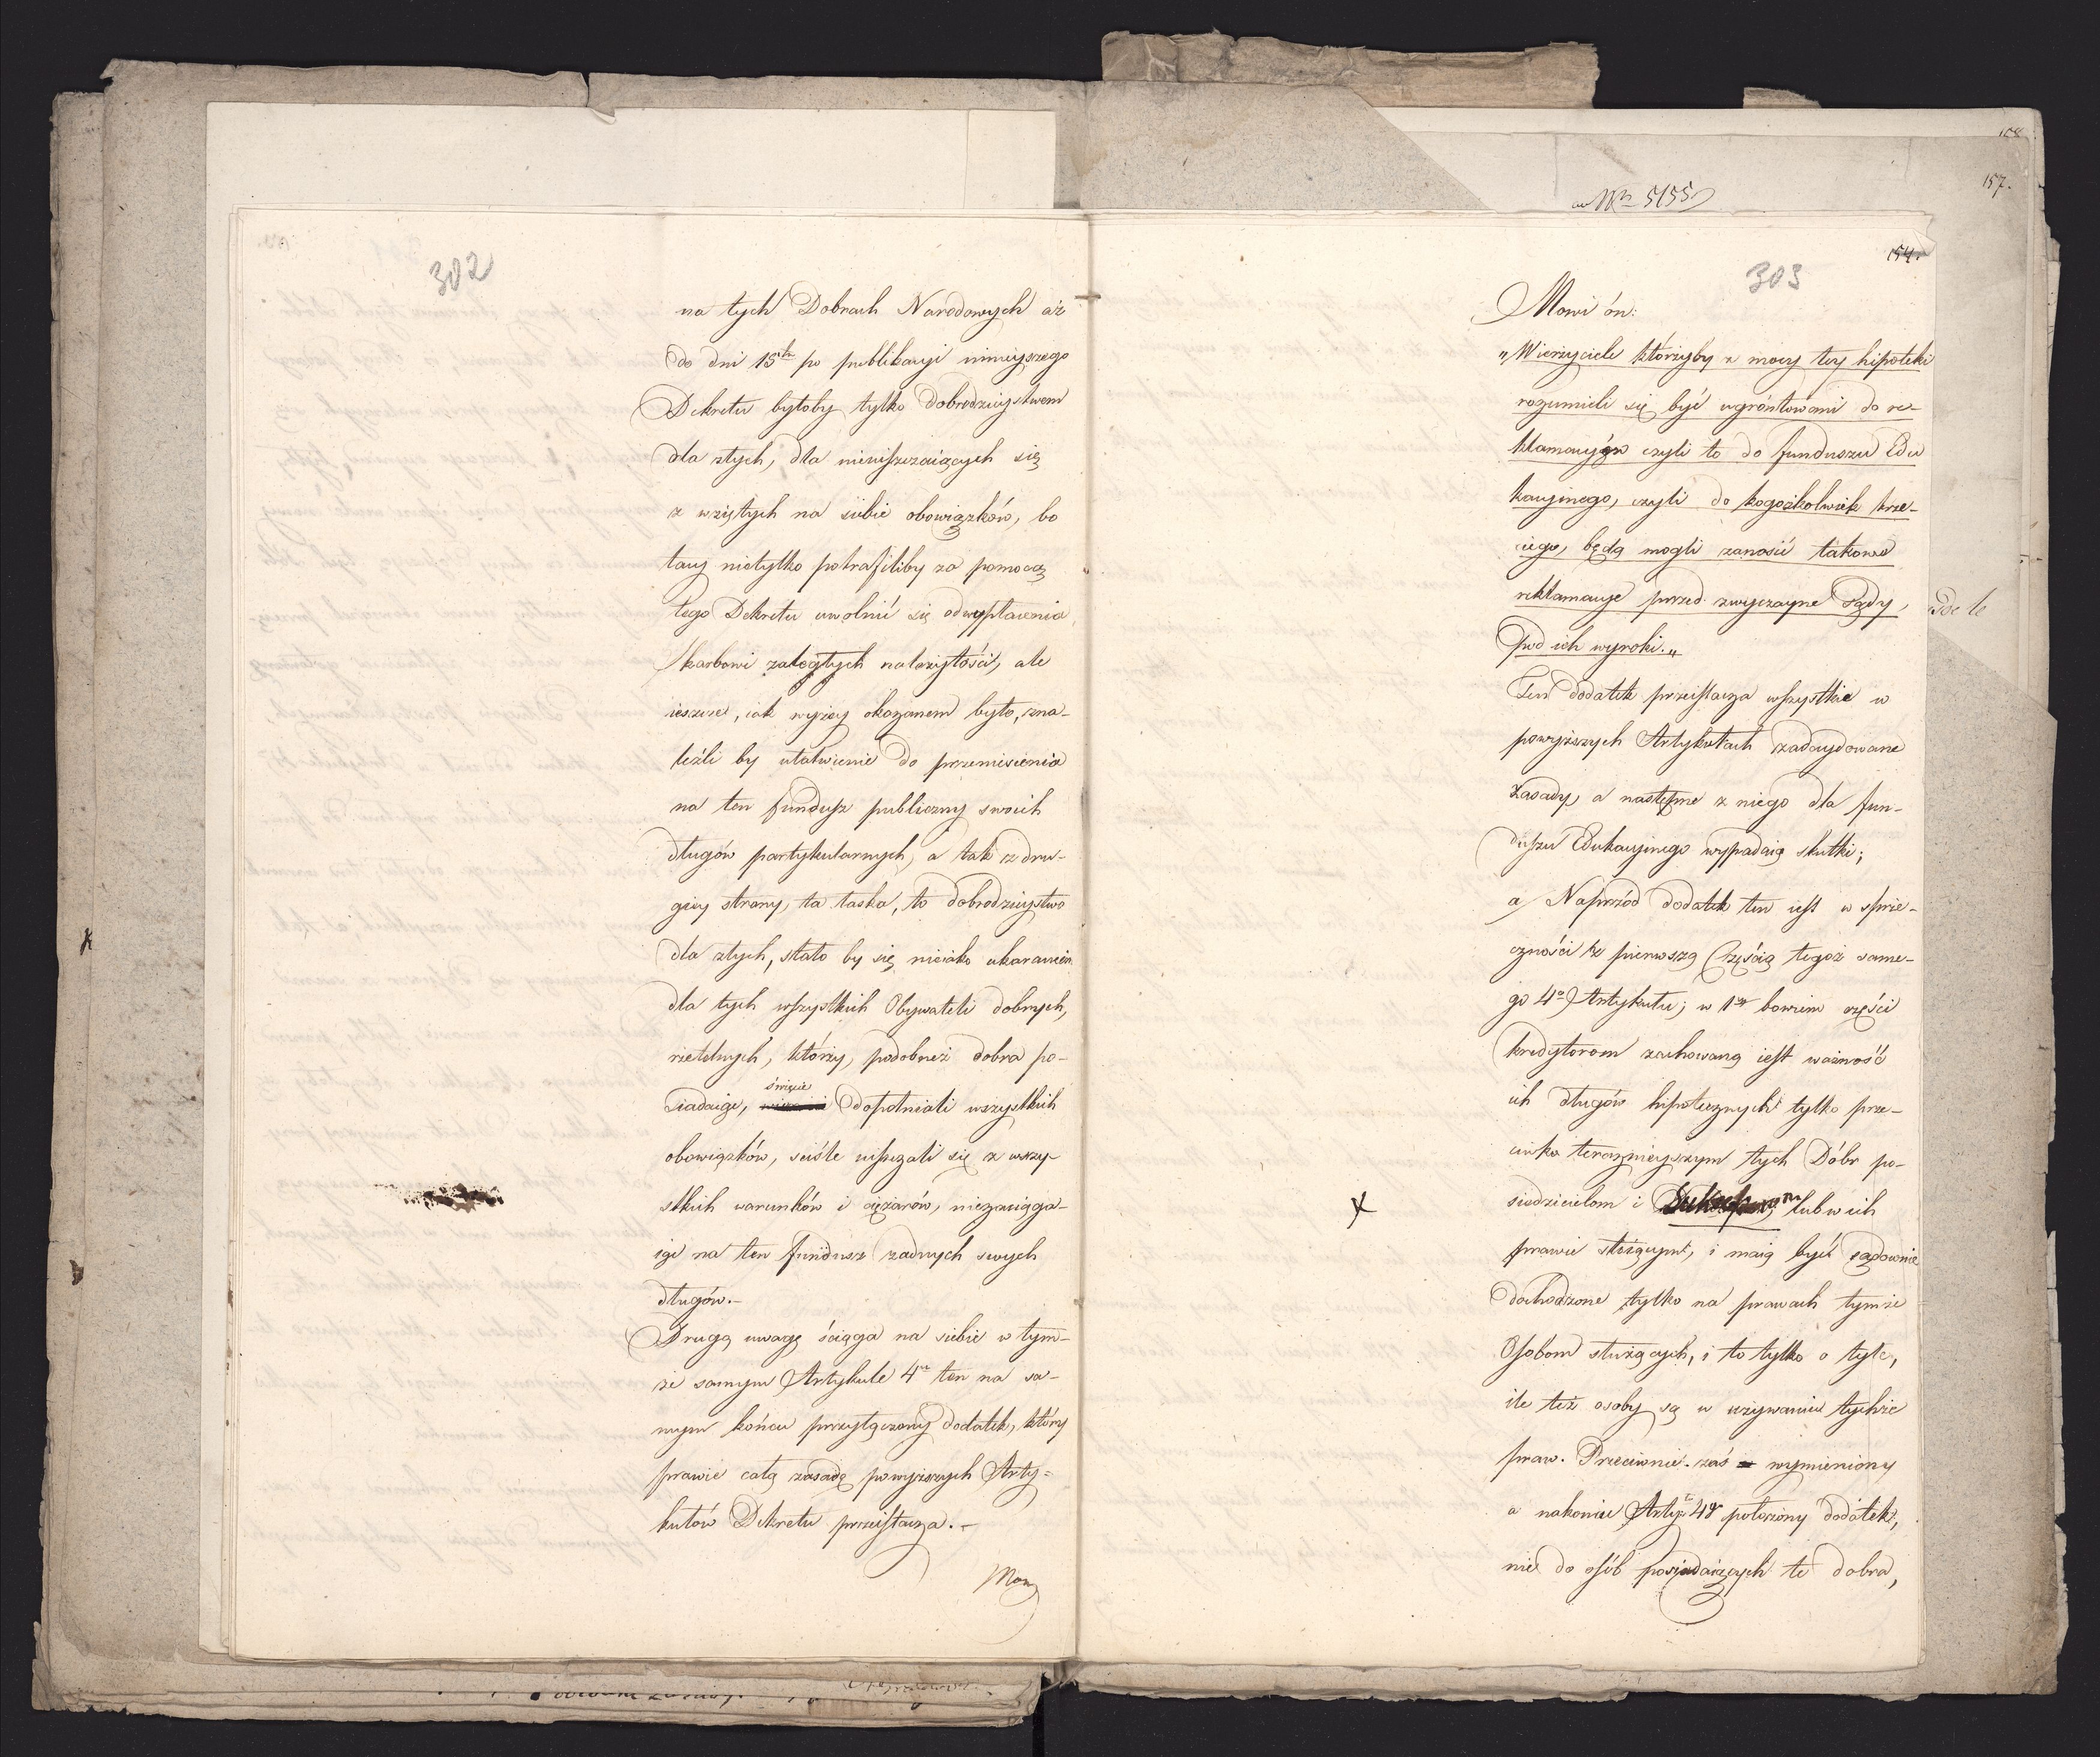 302
na tych Dobrach Narodowych aż
do dni 15tu po publikacyi nineyszego
Dekretu byłoby tylko dobrodzieystwem
dla złych, dla nieuiszczaiących się
z wziętych na siebie obowiązków, bo
tacy nietylko potrafiliby za pomocą
tego Dekretu uwolnić się od wypłacenia
skarbowi zaległych należytości, ale
ieszcze, iak wyżey okazanem było, zna-
leźli by ułatwienie do przeniesienia
na ten fundusz publiczny swoich
długów partykularnych, a tak z dru-
giey strony, ta łaska, to dobrodzieystwo
dla złych, stało by się nieiako ukaraniem
dla tych wszystkich Obywateli dobrych,
rzetelnych, którzy, podobnież dobra po-
siadaiąc, święcie dopełniali wszystkich
obowiązków, ściśle uiszczali się z wszy-
stkich warunków i ciężarów, niezaciąga-
iąc na ten fundusz żadnych swych
długów.-
Drugą uwagę ściąga na siebie w tym-
że samym Artykule 4m ten na sa-
mym końcu przyłączony dodatek, który
prawie całą zasadę powyższych Arty-
kułów Dekretu przeistacza.-
Mowi
108
157.
Nr 5155
154.
303
Mowi ón:
"Wierzyciele którzyby z mocy tey hipoteki
rozumieli się być ugróntowani do re-
klamacyów czyli to do funduszu Edu
kacyinego, czyli do kogożkolwiek trze-
ciego, będą mogli zanosić takowe
reklamacye przed zwyczayne Sądy,
pod ich wyroki."
Ten dodatek przeistacza wszystkie w
powyższych Artykułach zadecydowane
Zasady, a następne z niego dla fun-
duszu Edukacyinego wypadaią skutki;
a/ Naprzód dodatek ten iest w sprze-
czności z pierwszą Częścią tegoż same-
go 4o Artykułu; w 1ey bowiem części
kredytorom zachowaną iest ważność
ich długów hipotecznych tylko prze-
ciwko teraznieyszym tych Dóbr po-
siedzicielom i lub w ich
prawie stoiącym, i maią być sądownie
dochodzone tylko na prawach tymże
Osobom służących, i to tylko o tyle,
ile też osoby są w używaniu tychże
praw. Przeciwnie zaś wymieniony
a nakońcu Arty: 4go położony dodatek,
nie do osób posiadaiących te dobra,